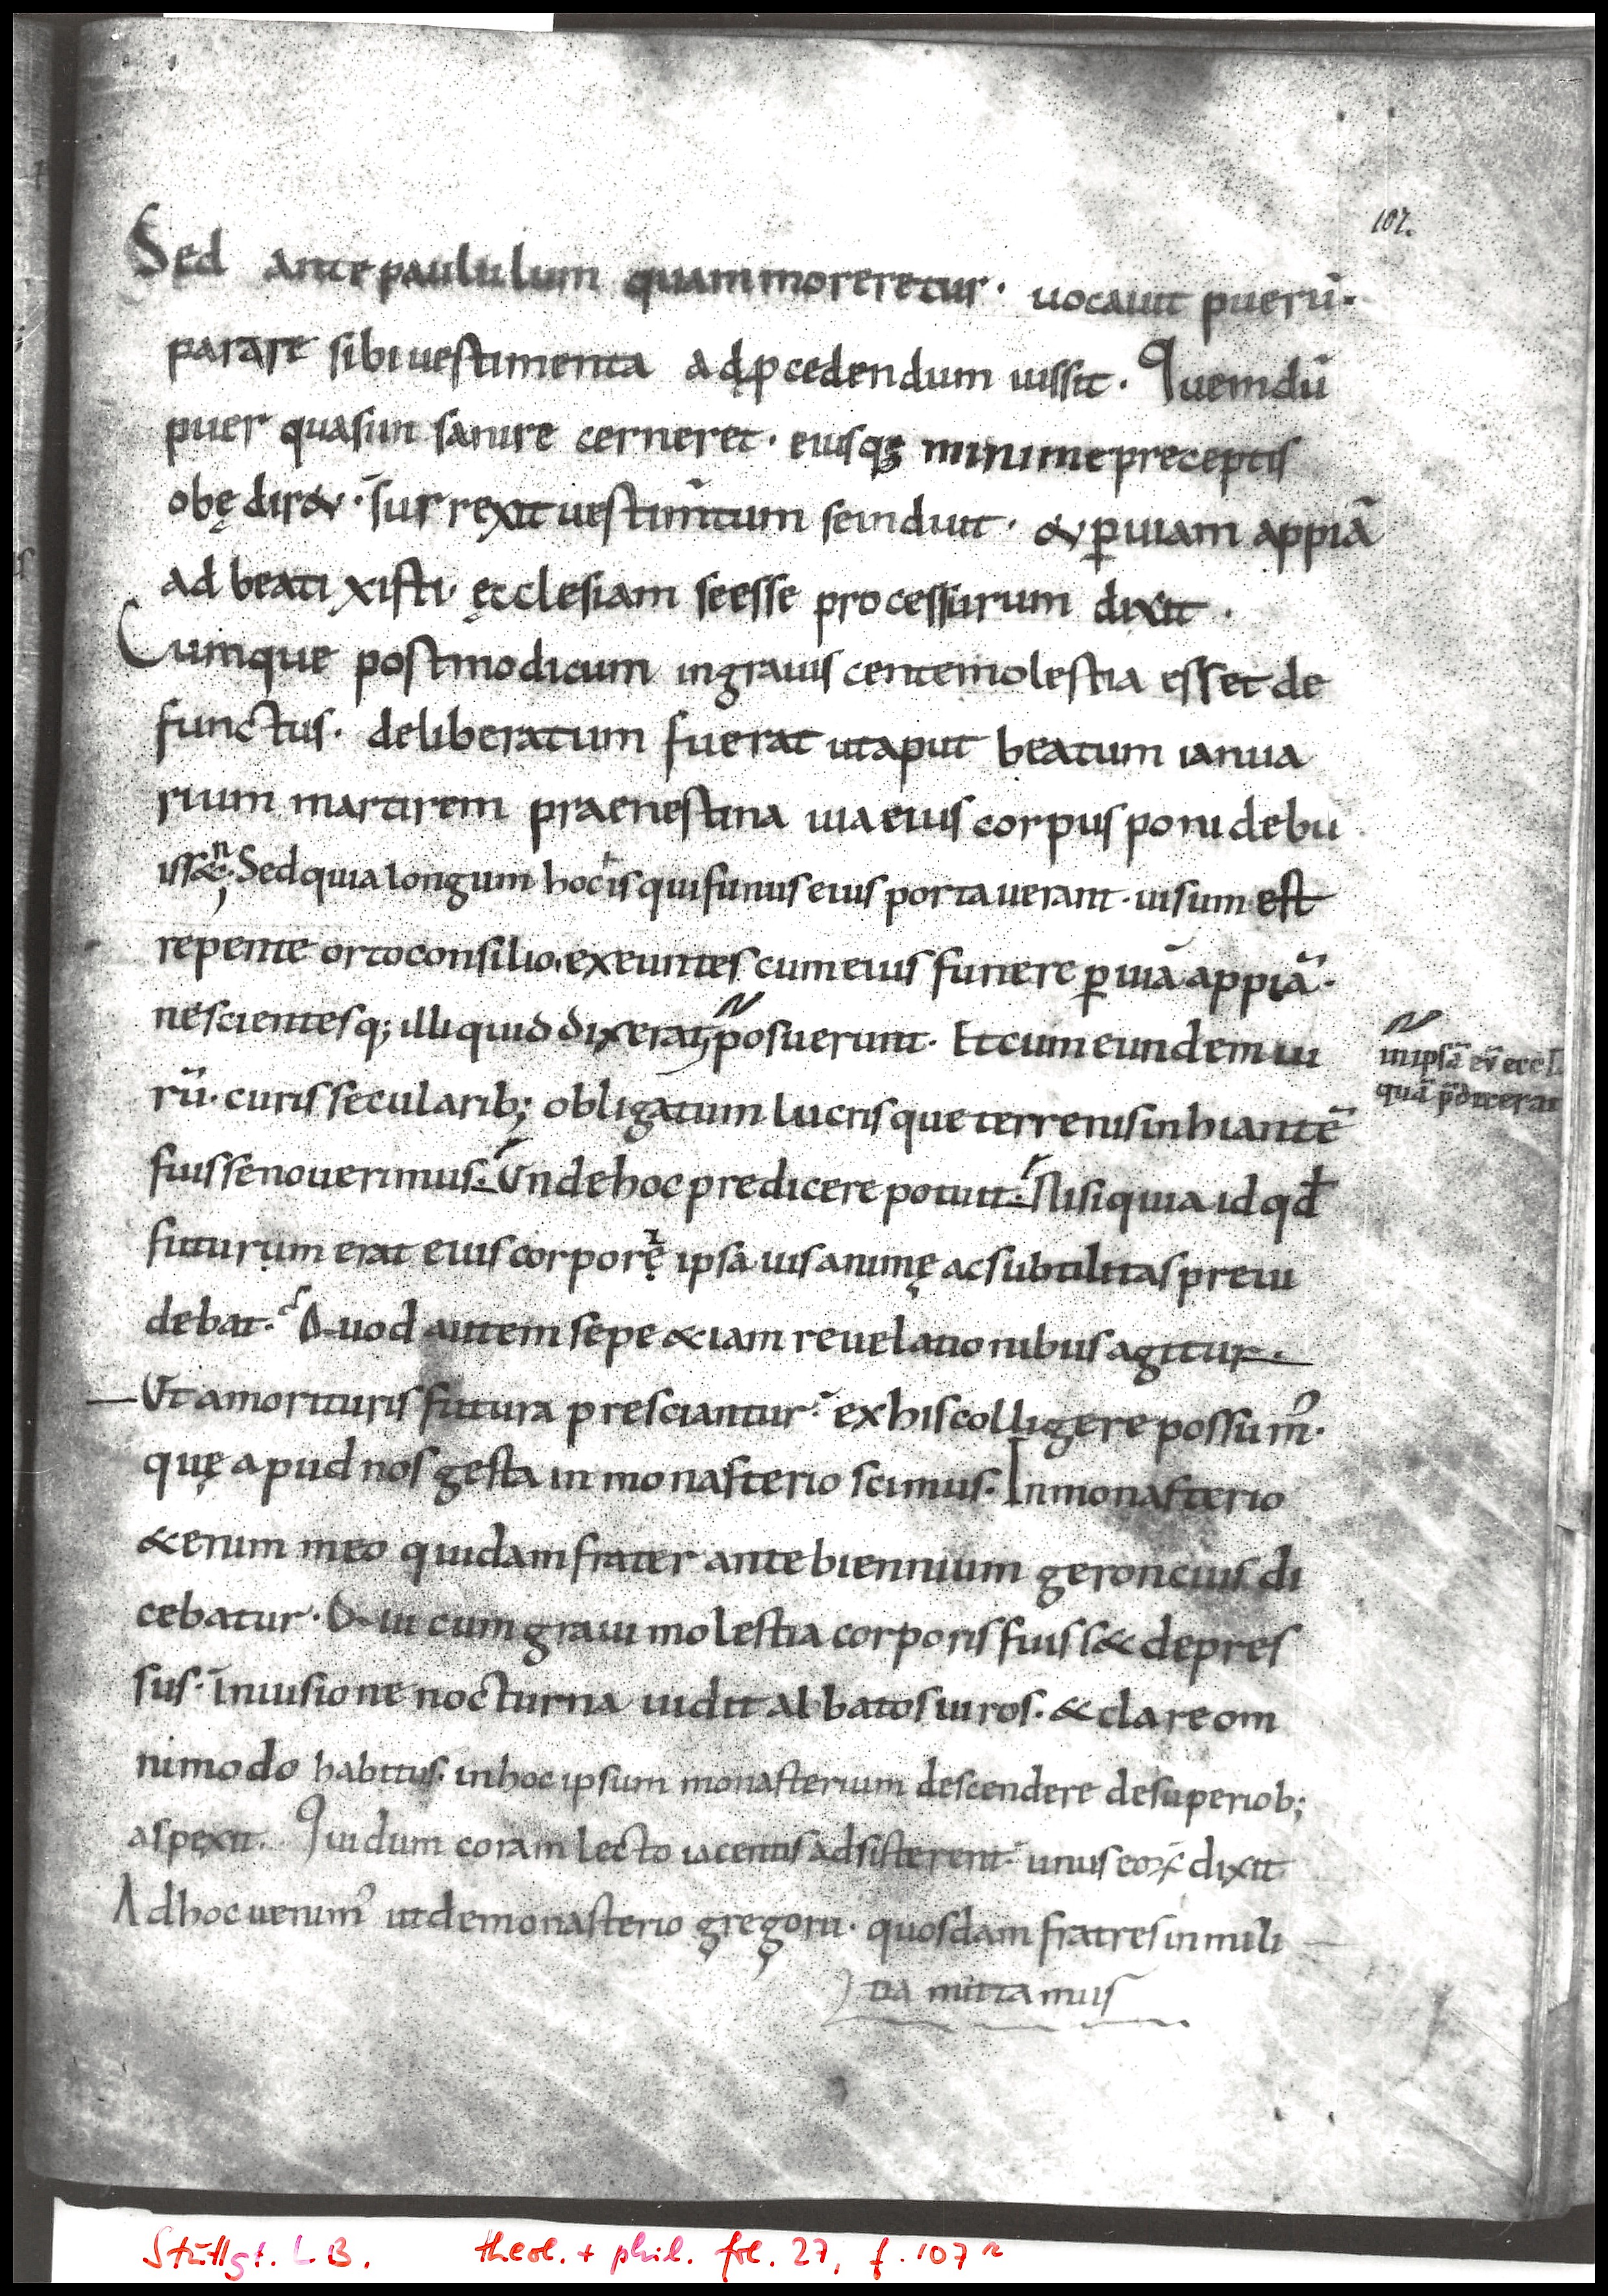 107.
Sed ante paululum quam moreretur. uocauit puerū.
parare sibi uestimenta ad ꝓcedendum iussit. Quem dū
puer quasi in sanire cerneret. eiusqꝫ minime preceptis
obędir&. surrexit uestim̄tum se induit. & ꝑ uiam appiā
ad beati xisti. ęcclesiam se esse processurum dixit.
Cumque post modicum ingrauis cente molestia esset de
functus. deliberatum fuerat ut aput beatum ianua
rium martirem praenestina uia eius corpus poni debu
iss&; Sed quia longum hoc is qui funus eius porta uerant. uisum est
repente orto consilio. exeuntes cum eius funere ꝑ uiā appiā.
nescientesq; illi quid dixerat, posuerunt. Et cum eundem ui
in ipsā eī eccl
rū. curis secularib; obligatum lucrisque terrenis inhiantē
quā p̄dixerat
fuisse nouerimus. Unde hoc predicere potuit. Nisi quia id qđ
futurum erat eius corporę ipsa uis animę ac subtilitas preui
debat. Quod autem sepe &iam reuelationibus agitur.
Ut a morituris futura presciantur. ex his colligere possum᾽.
quę apud nos gesta in monasterio scimus. In monasterio
&enim meo quidam frater ante biennium geroncius di
cebatur. Qui cum graui molestia corporis fuiss& depres
sus. in uisione nocturna uidit albatos uiros. & clare om
nimodo habitus. in hoc ipsum monasterium descendere de superiob;
aspexit. Qui dum coram lecto iacentis adsisterent. unus eoꝝ dixit
Ad hoc uenim᾽ ut de monasterio gregorii. quosdam fratres in mili
tia mittamus
Stuttgt. L B. theol. + phil. fol. 27, f. 107 r